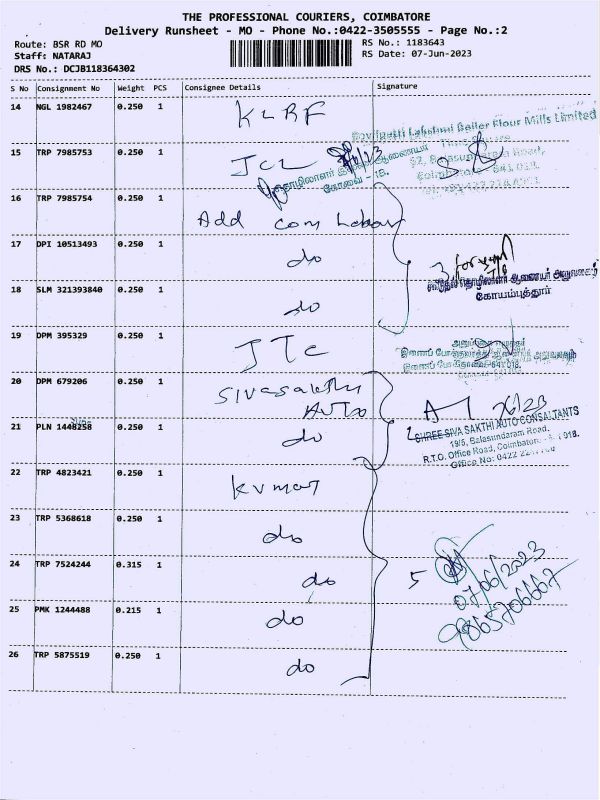 THE PROFESSIONAL COURIERS, COIMBATORE
Delivery Runsheet - MO - Phone No.:0422-3505555 - Page No.:2
Route: BSR RD MO
Staff: NATARAJ
DRS No.: DCJB118364302
RS No.: 1183643
RS Date: 07-Jun-2023
S No Consignment No Weight PCS Consignee Details Signature
14 NGL 1982467 0.250 1 KLRF
Lakshmi Roller Flour Mills Limited
15 TRP 7985753 0.250 1 JCL
52, Balasundaram Road,
Coimbatore - 641 018.
கோவை - 18.
16 TRP 7985754 0.250 1 Add Com Labour
17 DPI 10513493 0.250 1 do
3
18 SLM 321393840 0.250 1 do
கூடுதல் தொழிலாளர் ஆணையர் அலுவலகம்
கோயம்புத்தூர்
19 DPM 395329 0.250 1 JTC
641 018.
20 DPM 679206 0.250 1 Sivasakthi Auto
2
SHREE SIVA SAKTHI AUTO CONSALTANTS
19/5, Balasundaram Road,
R.T.O. Office Road, Coimbatore - 641 018.
Office No: 0422
21 PLN 1448258 0.250 1 do
22 TRP 4823421 0.250 1 Kumar
23 TRP 5368618 0.250 1 do
24 TRP 7524244 0.315 1 do
5
07/06/2023
9865706667
25 PMK 1244488 0.215 1 do
26 TRP 5875519 0.250 1 do